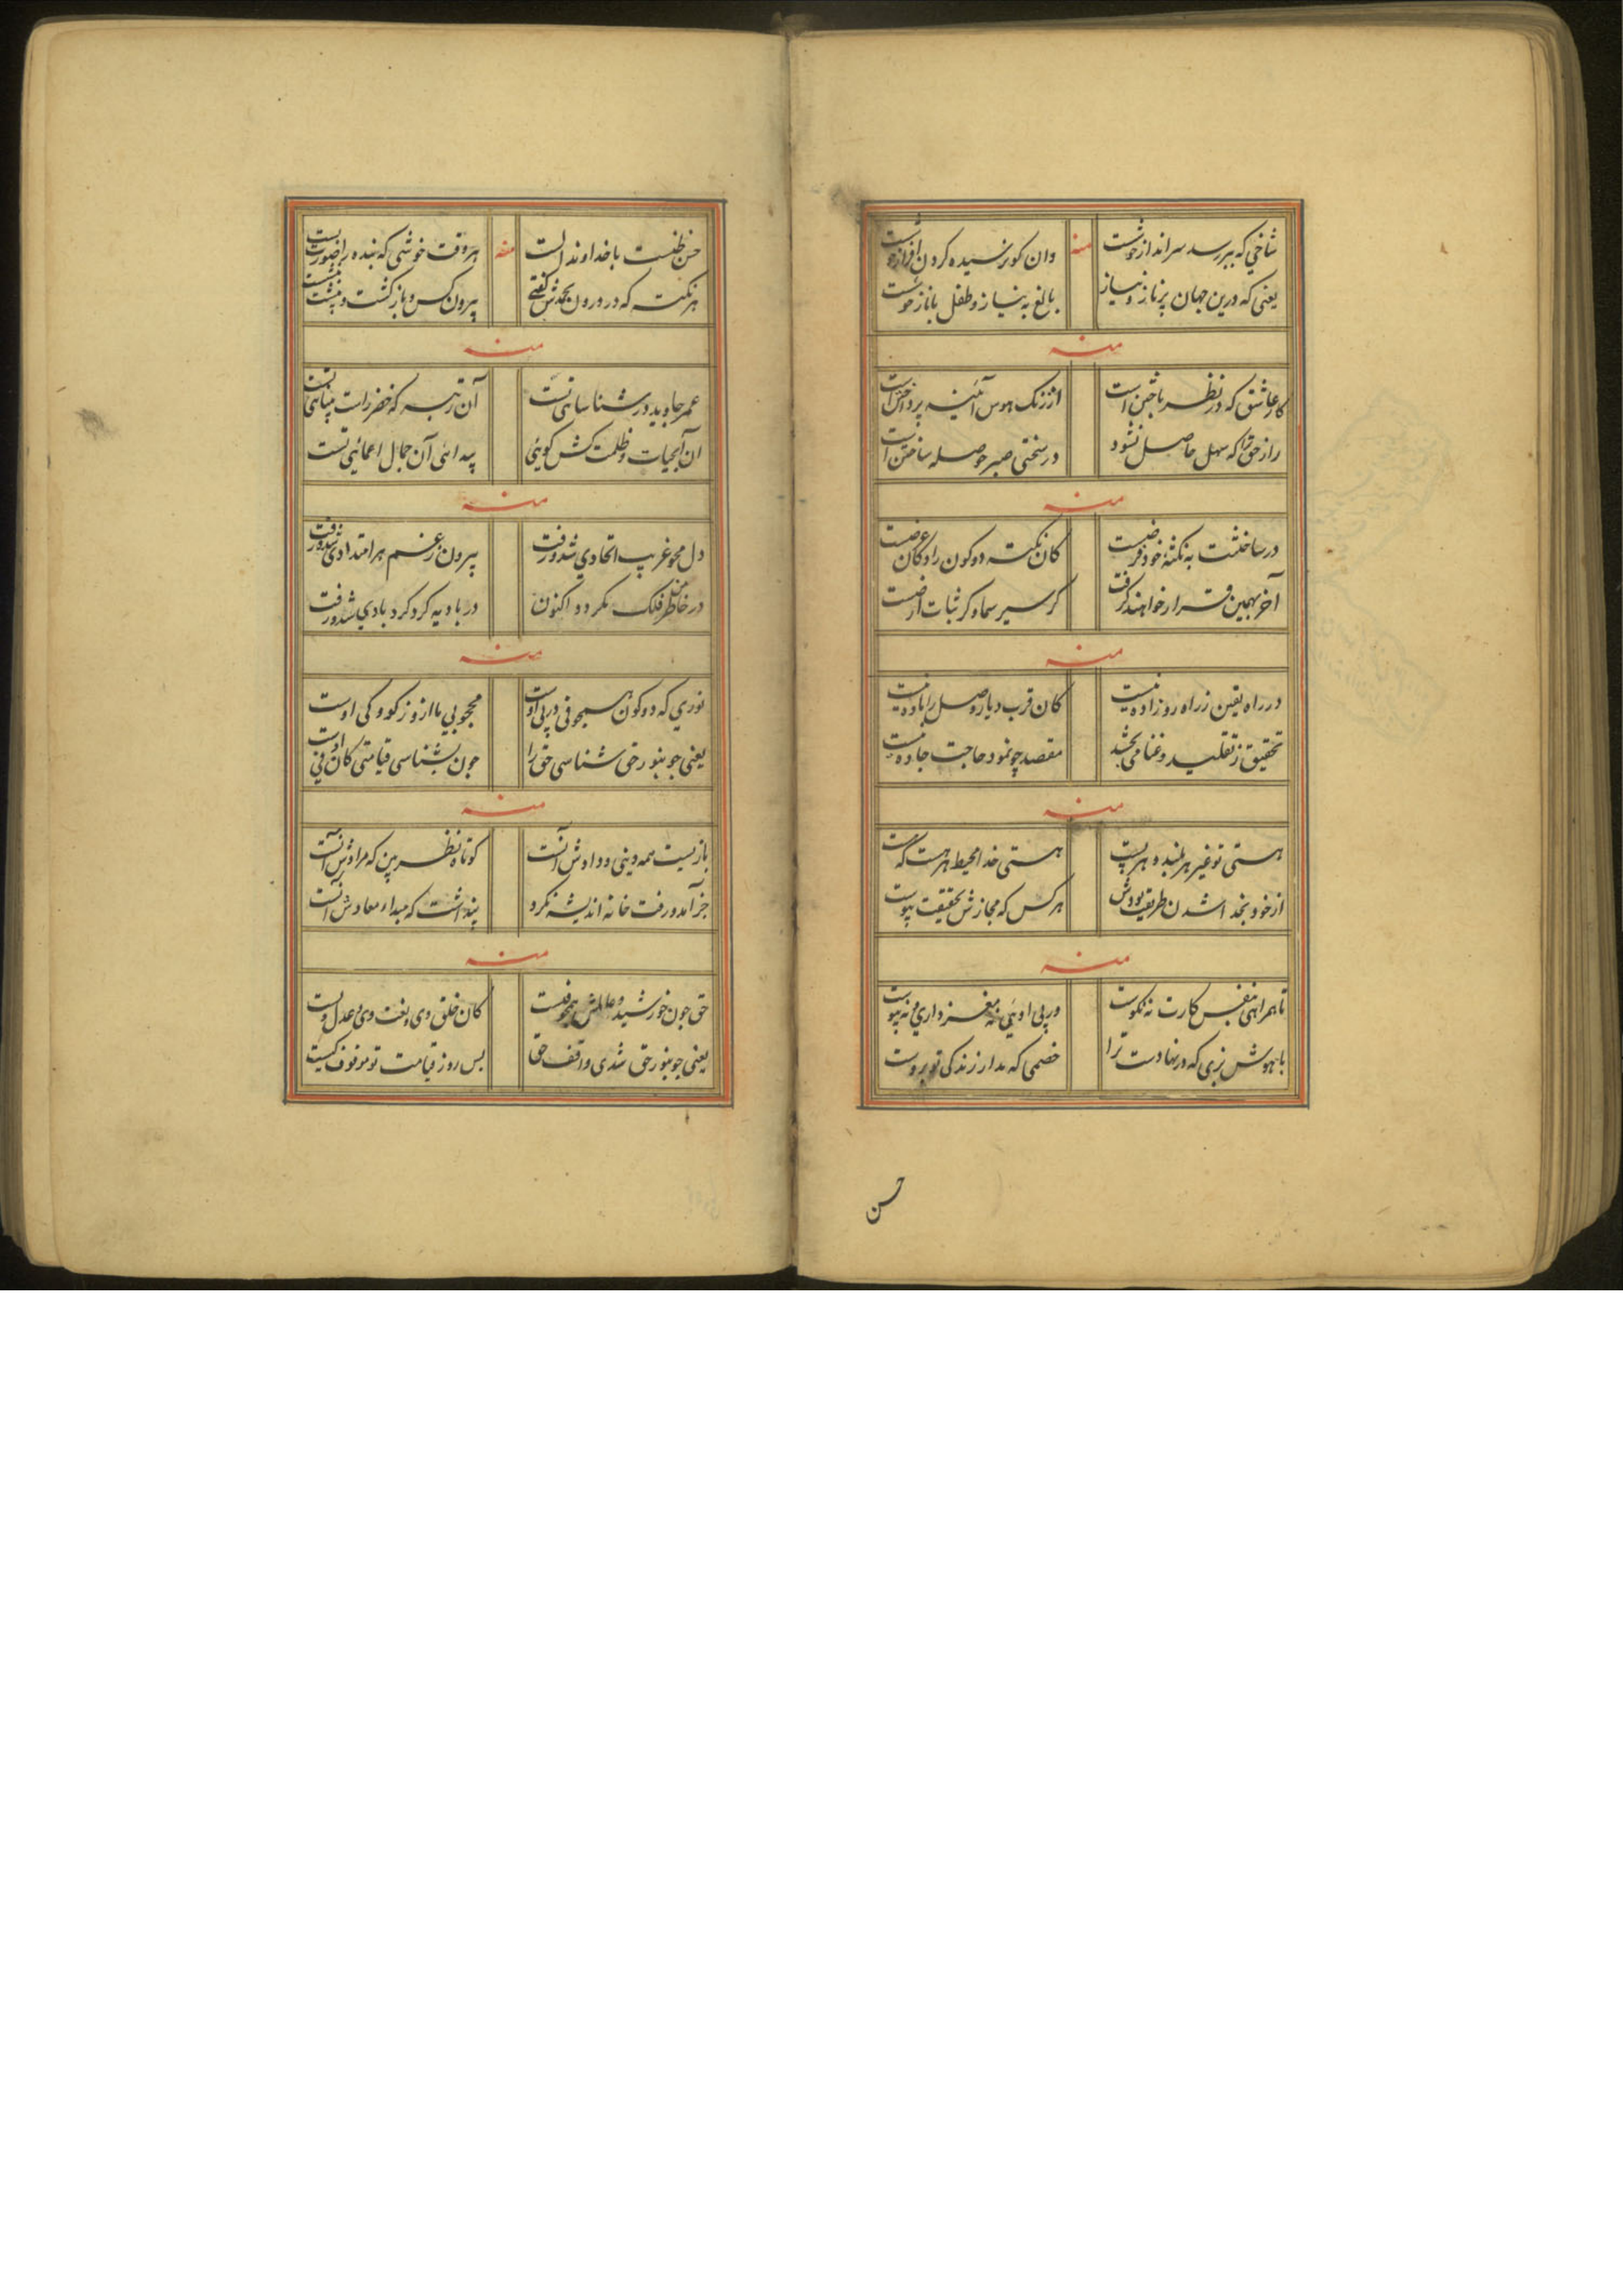 شاخی که ببر رسد سر انداز خوشست منه وان کو نرسیده گردن افراز خوشست
یعنی که درین جهان پر ناز و نیاز بالغ به نیاز و طفل با ناز خوشست
منه
کار عاشق که در نظر باختن است از زنک هوس آئینه پرداختن است
راز حق که سهل حاصل نشود در سختی صبر حوصله ساختن است
منه
در ساختنت به نکته خود فرضست کان نکته دو کون را و کان عرضست
آخر بهمین قرار خواهند گرفت کر سیر سما و کر ثبات ارضست
منه
در راه یقین زراه رو زاده نیست کان قرب دیار وصل را باده نیست
تحقیق ز تقلید و غنا می بخشد مقصد چو نمود حاجت جاده نیست
منه
هستی تو غیر هر بلند و هر پست هستی خدا محیط هر هست که هست
از خود بخدا شدن طریقت بودش هر کس که مجازش بحقیقت پیوست
منه
تا همراهی نفس کارت نه نکوست ور پی اوئی نه مغز داری و نه پوست
با هوش بزی که در نهادست ترا خصمی که مدار زندگی تو بروست
حسن
حسن ظنست با خداوند الست منه هر وقت خوشی که بنده را صورت بست
هر نکته که در درون بخودش گفتی بیرون کس و باز کشت و بنشست
منه
عمر جاوید در شناسائی تست آن رتبه که خضر راست بینائی تست
آن آبحیات و ظلمت کش گوئی پیدائی آن جمال اعمائی تست
منه
دل محو غریب اتحادی شد و رفت بیرون زغم هر امتدادی شد و رفت
در خاطر فلک نکردد اکنون در بادیه کرد کرد بادی شد و رفت
منه
نوری که دو کون همچو فی در پی اوست محجوبی ما از وز کوردکی اوست
یعنی چو بنور حق شناسی حق را چون بشناسی قیامتی کان فی اوست
منه
بازیست همه دینی و دادش آنست کوتاه نظر بین که مرادش آنست
جز آمد و رفت خانه اندیشه نکرد پنداشت که مبداء معادش آنست
منه
حق چون خورشید و عالمش همچو فیست کان خلق وی و بعث وی و عدل ویست
یعنی چو بنور حق شدی واقف حق پس روز قیامت تو موقوف کیست